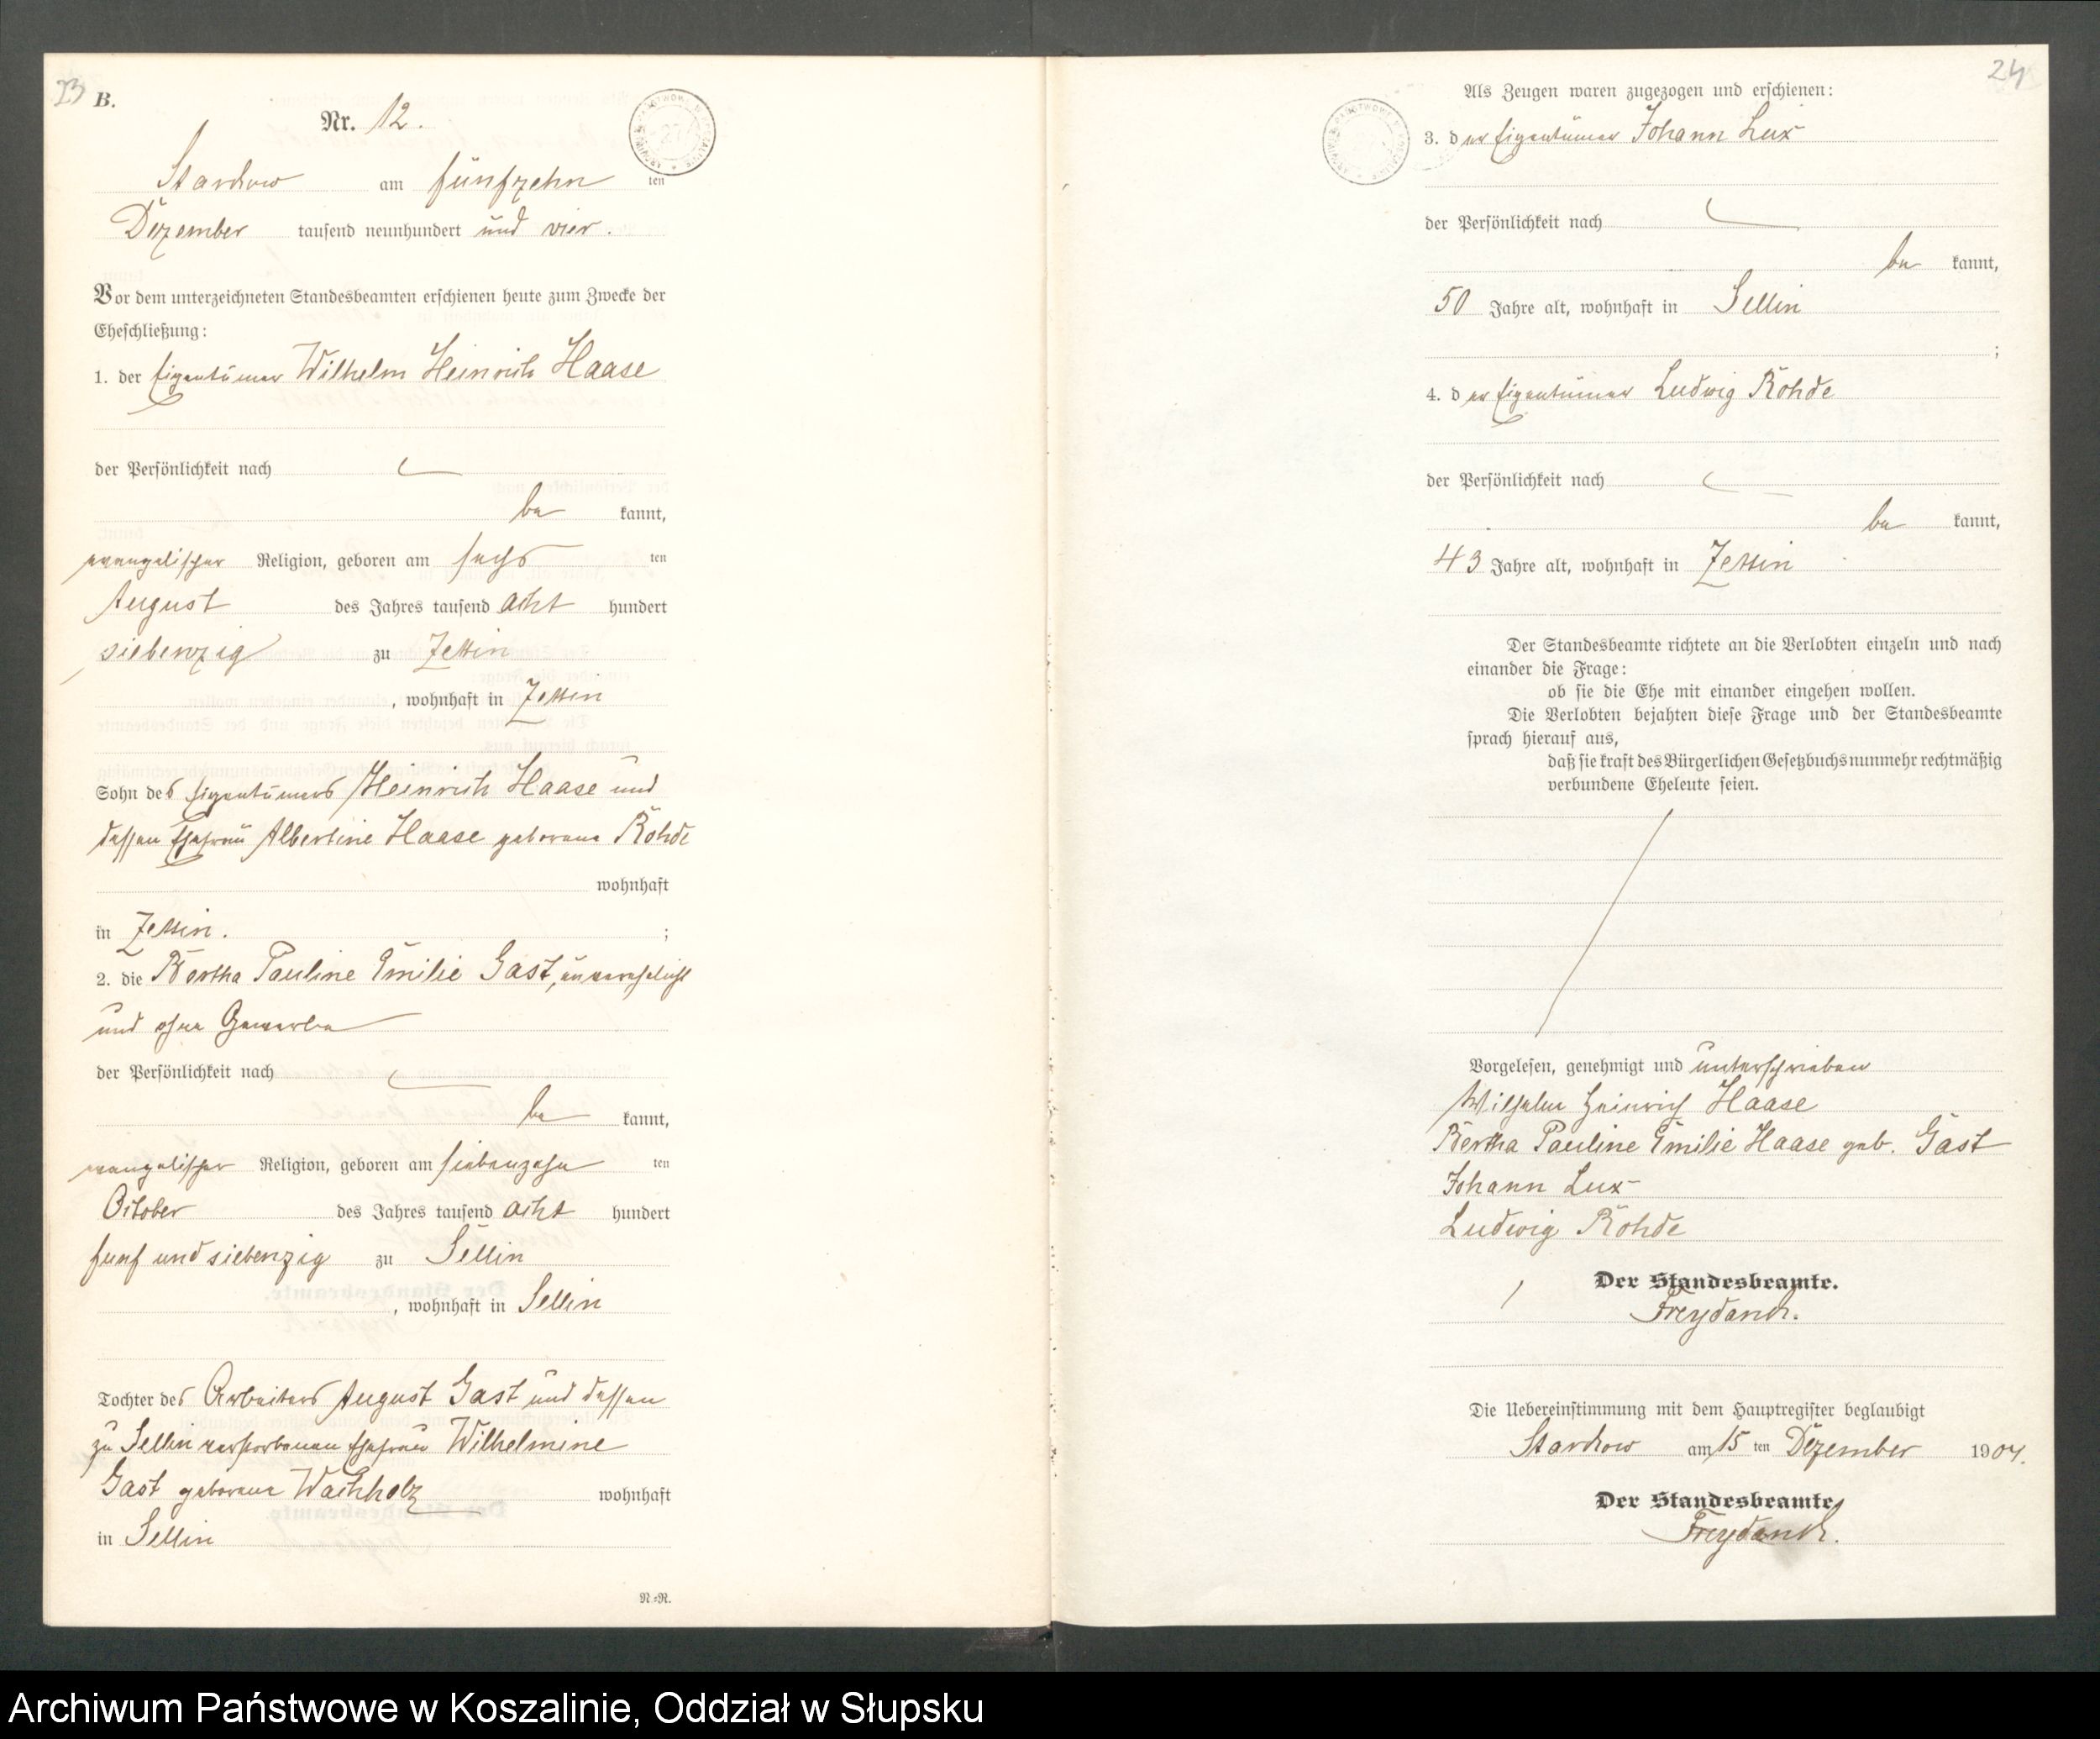 23
B.
Nr. 12.
Starkow am fünfzehn ten
Dezember tausend neunhundert und vier.
Vor dem unterzeichneten Standesbeamten erschienen heute zum Zwecke der
Eheschließung:
1. der Eigentümer Wilhelm Heinrich Haase
der Persönlichkeit nach
be kannt,
evangelischer Religion, geboren am sechs ten
August des Jahres tausend acht hundert
siebenzig zu Zettin
, wohnhaft in Zettin
Sohn des Eigentümers Heinrich Haase und
dessen Ehefrau Albertine Haase geborene Rohde
wohnhaft
in Zettin. ;
2. die Bertha Pauline Emilie Gast, unverehelicht
und ohne Gewerbe
der Persönlichkeit nach
be kannt,
evangelischer Religion, geboren am siebenzehn ten
October des Jahres tausend acht hundert
fünf und siebenzig zu Sellin
, wohnhaft in Sellin
Tochter des Arbeiters August Gast und dessen
zu Sellin verstorbenen Ehefrau Wilhelmine
Gast geborene Wachholz wohnhaft
in Sellin
N.=R.
24
Als Zeugen waren zugezogen und erschienen:
3. der Eigentümer Johann Lux
der Persönlichkeit nach
be kannt,
50 Jahre alt, wohnhaft in Sellin
;
4. der Eigentümer Ludwig Rohde
der Persönlichkeit nach
be kannt,
43 Jahre alt, wohnhaft in Zettin
Der Standesbeamte richtete an die Verlobten einzeln und nach
einander die Frage:
ob sie die Ehe mit einander eingehen wollen.
Die Verlobten bejahten diese Frage und der Standesbeamte
sprach hierauf aus,
daß sie kraft des Bürgerlichen Gesetzbuchs nunmehr rechtmäßig
verbundene Eheleute seien.
Vorgelesen, genehmigt und unterschrieben
Wilhelm Heinrich Haase
Bertha Pauline Emilie Haase geb. Gast
Johann Lux
Ludwig Rohde
Der Standesbeamte.
Freydanck.
Die Uebereinstimmung mit dem Hauptregister beglaubigt
Starkow am 15 ten Dezember 1904.
Der Standesbeamte
Freydanck.
Archiwum Państwowe w Koszalinie, Oddział w Słupsku